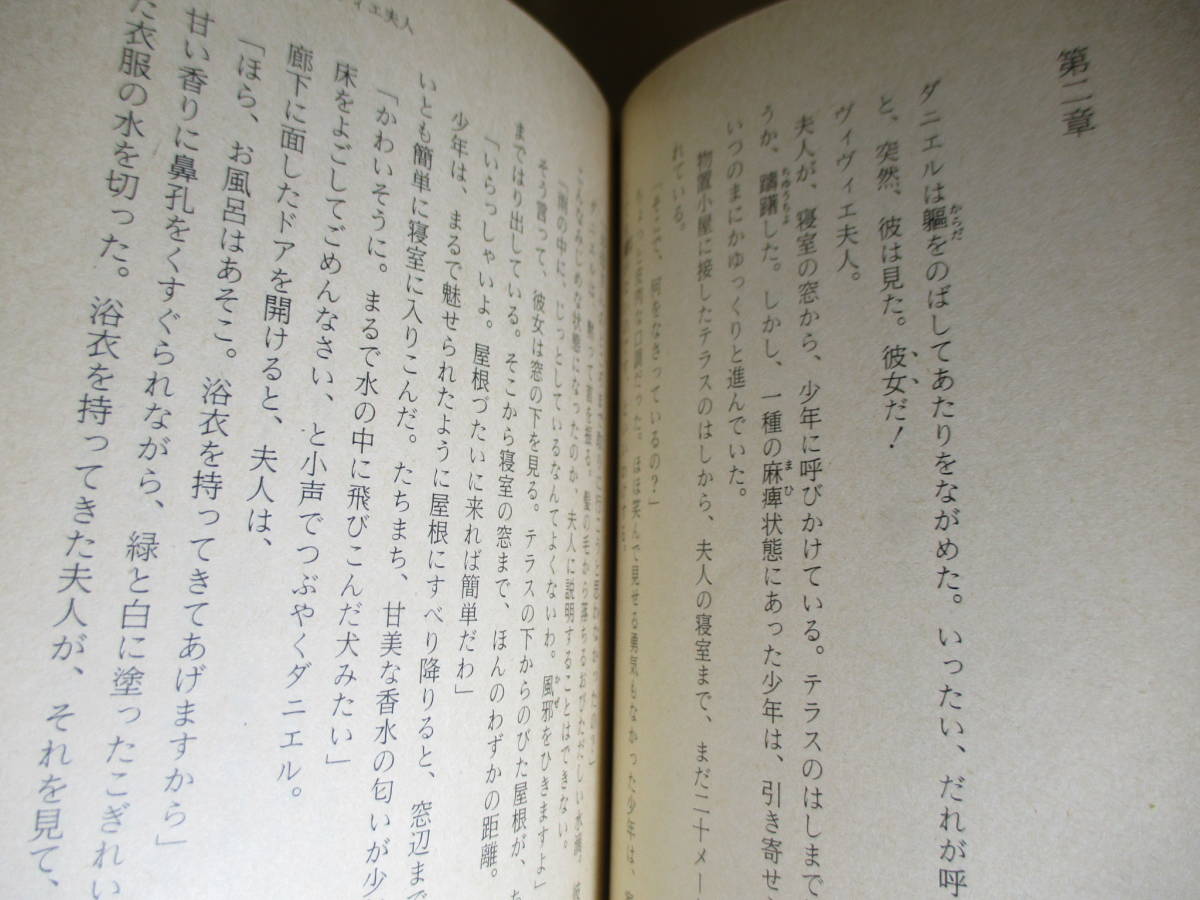 第二章
ダニエルは軀をのばしてあたりをながめた。いったい、だれが呼
からだ
と、突然、彼は見た。彼女だ！
ヴィヴィエ夫人。
夫人が、寝室の窓から、少年に呼びかけている。テラスのはしまで
うか、躊躇した。しかし、一種の麻痺状態にあった少年は、引き寄せ
ちゅうちょ
まひ
いつのまにかゆっくりと進んでいた。
物置小屋に接したテラスのはしから、夫人の寝室まで、まだ二十メー
れている。
「そこで、何をなさっているの？」
ちょっと皮肉な口調だった。ほほ笑んで見せる勇気もなかった少年は、
ダニエルは、黙って首を振る。髪の毛から落ちるおびただしい水滴。彼
こんなみじめな状態になったのか、夫人に説明することはできない。
「雨の中に、じっとしているなんてよくないわ。風邪をひきますよ」
かぜ
そう言って、彼女は窓の下を見る。テラスの下からのびた屋根が、ち
まではり出している。そこから寝室の窓まで、ほんのわずかの距離。
「いらっしゃいよ。屋根づたいに来れば簡単だわ」
少年は、まるで魅せられたように屋根にすべり降りると、窓辺まで
いとも簡単に寝室に入りこんだ。たちまち、甘美な香水の匂いが少
「かわいそうに。まるで水の中に飛びこんだ犬みたい」
床をよごしてごめんなさい、と小声でつぶやくダニエル。
廊下に面したドアを開けると、夫人は、
「ほら、お風呂はあそこ。浴衣を持ってきてあげますから」
甘い香りに鼻孔をくすぐられながら、緑と白に塗ったこぎれい
た衣服の水を切った。浴衣を持ってきた夫人が、それを見て、
ィエ夫人